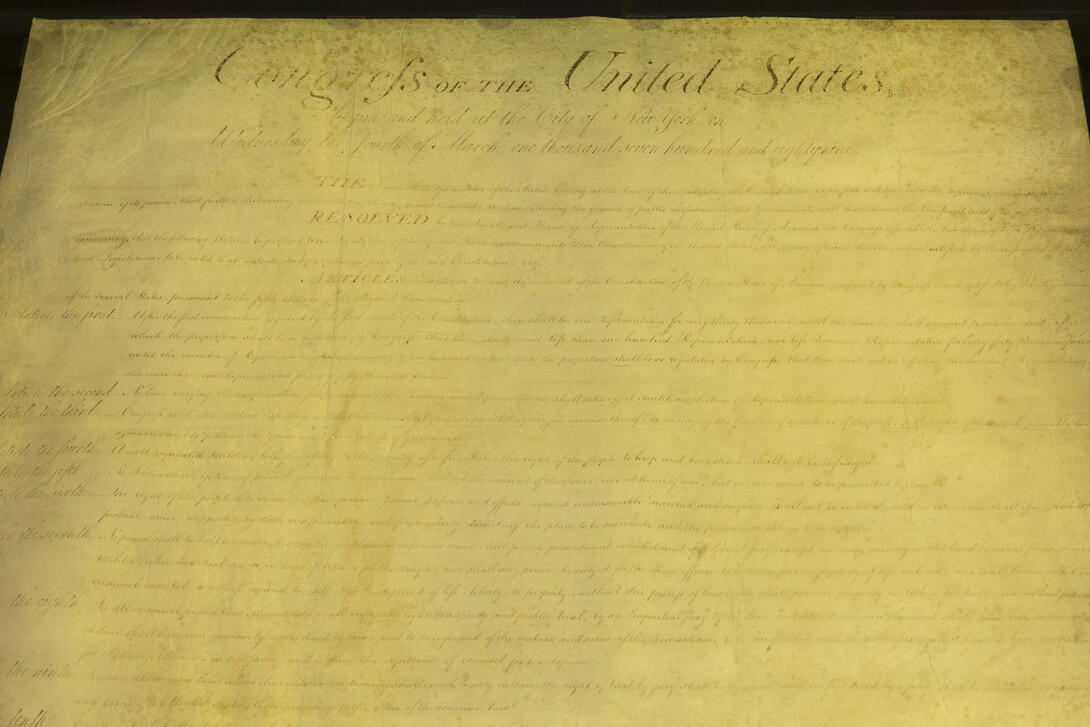 Congreſs OF THE United States,
begun and held at the City of New York, on
Wednesday the fourth of March, one thousand seven hundred and eighty nine.
THE of the States having at the time of their adopting the Constitution, expreſsed a desire
of its powers, that further declaratory extending the ground of public confidence in the Government, will best ensure the beneficent ends
RESOLVED by the Senate and House of Representatives of the United States of America, in Congreſs aſsembled, two thirds of
concurring, that the following Articles be proposed to the Legislatures of the several States, as amendments to the Constitution of the United States,
said Legislatures, to be valid to all intents and purposes, as part of the said Constitution, viz.
ARTICLES in addition to, and amendment of the Constitution of the United States of America, proposed by Congreſs, and ratified by the Legislatures
of the several States, pursuant to the fifth Article of the Original Constitution.
Article the first. After the first enumeration required by the first Article of the Constitution, there shall be one Representative for every thirty thousand, until the number shall amount to one hundred, after
which, the proportion shall be so regulated by Congreſs, that there shall be not leſs than one hundred Representatives, nor leſs than one Representative for every forty thousand persons,
until the number of Representatives shall amount to two hundred, after which the proportion shall be so regulated by Congreſs, that there shall not be leſs than two hundred Representatives,
nor more than one Representative for every fifty thousand persons.
Article the second. No law, varying the compensation for the services of the Senators and Representatives, shall take effect, until an election of Representatives shall have intervened.
Article the third. Congreſs shall make no law respecting an establishment of religion, or prohibiting the free exercise thereof; or abridging the freedom of speech, or of the preſs; or the right of the people peaceably to
aſsemble, and to petition the Government for a redreſs of grievances.
Article the fourth. A well regulated militia, being neceſsary to the security of a free State, the right of the people to keep and bear arms, shall not be infringed.
Article the fifth. No Soldier shall, in time of peace be quartered in any house, without the consent of the owner, nor in time of war, but in a manner to be prescribed by law.
Article the sixth. The right of the people to be secure in their persons, houses, papers, and effects, against unreasonable searches and seizures, shall not be violated, and no warrants shall iſsue, but upon
probable cause, supported by oath or affirmation, and particularly describing the place to be searched, and the persons or things to be seized.
the seventh. No person shall be held to answer for a capital, or otherwise infamous crime, unleſs on a presentment or indictment of a Grand Jury, except in cases arising in the land or naval forces, or in the
militia, when in actual service in time of War or public danger; nor shall any person be subject for the same offence to be twice put in jeopardy of life or limb; nor shall be compelled in any
criminal case, to be a witneſs against himself, nor be deprived of life, liberty, or property, without due proceſs of law; nor shall private property be taken for public use without just
the eighth. In all criminal prosecutions, the accused shall enjoy the right to a speedy and public trial, by an impartial jury of the State and district wherein the crime shall have been committed
district shall have been previously ascertained by law, and to be informed of the nature and cause of the accusation; to be confronted with the witneſses against him; to have compulsory
for obtaining witneſses in his favor, and to have the aſsistance of counsel for his defence.
the ninth. In suits at common law, where the value in controversy shall exceed twenty dollars, the right of trial by jury shall be preserved, and no fact tried by a jury, shall be otherwise
any Court of the United States, than according to the rules of the common law.
tenth.